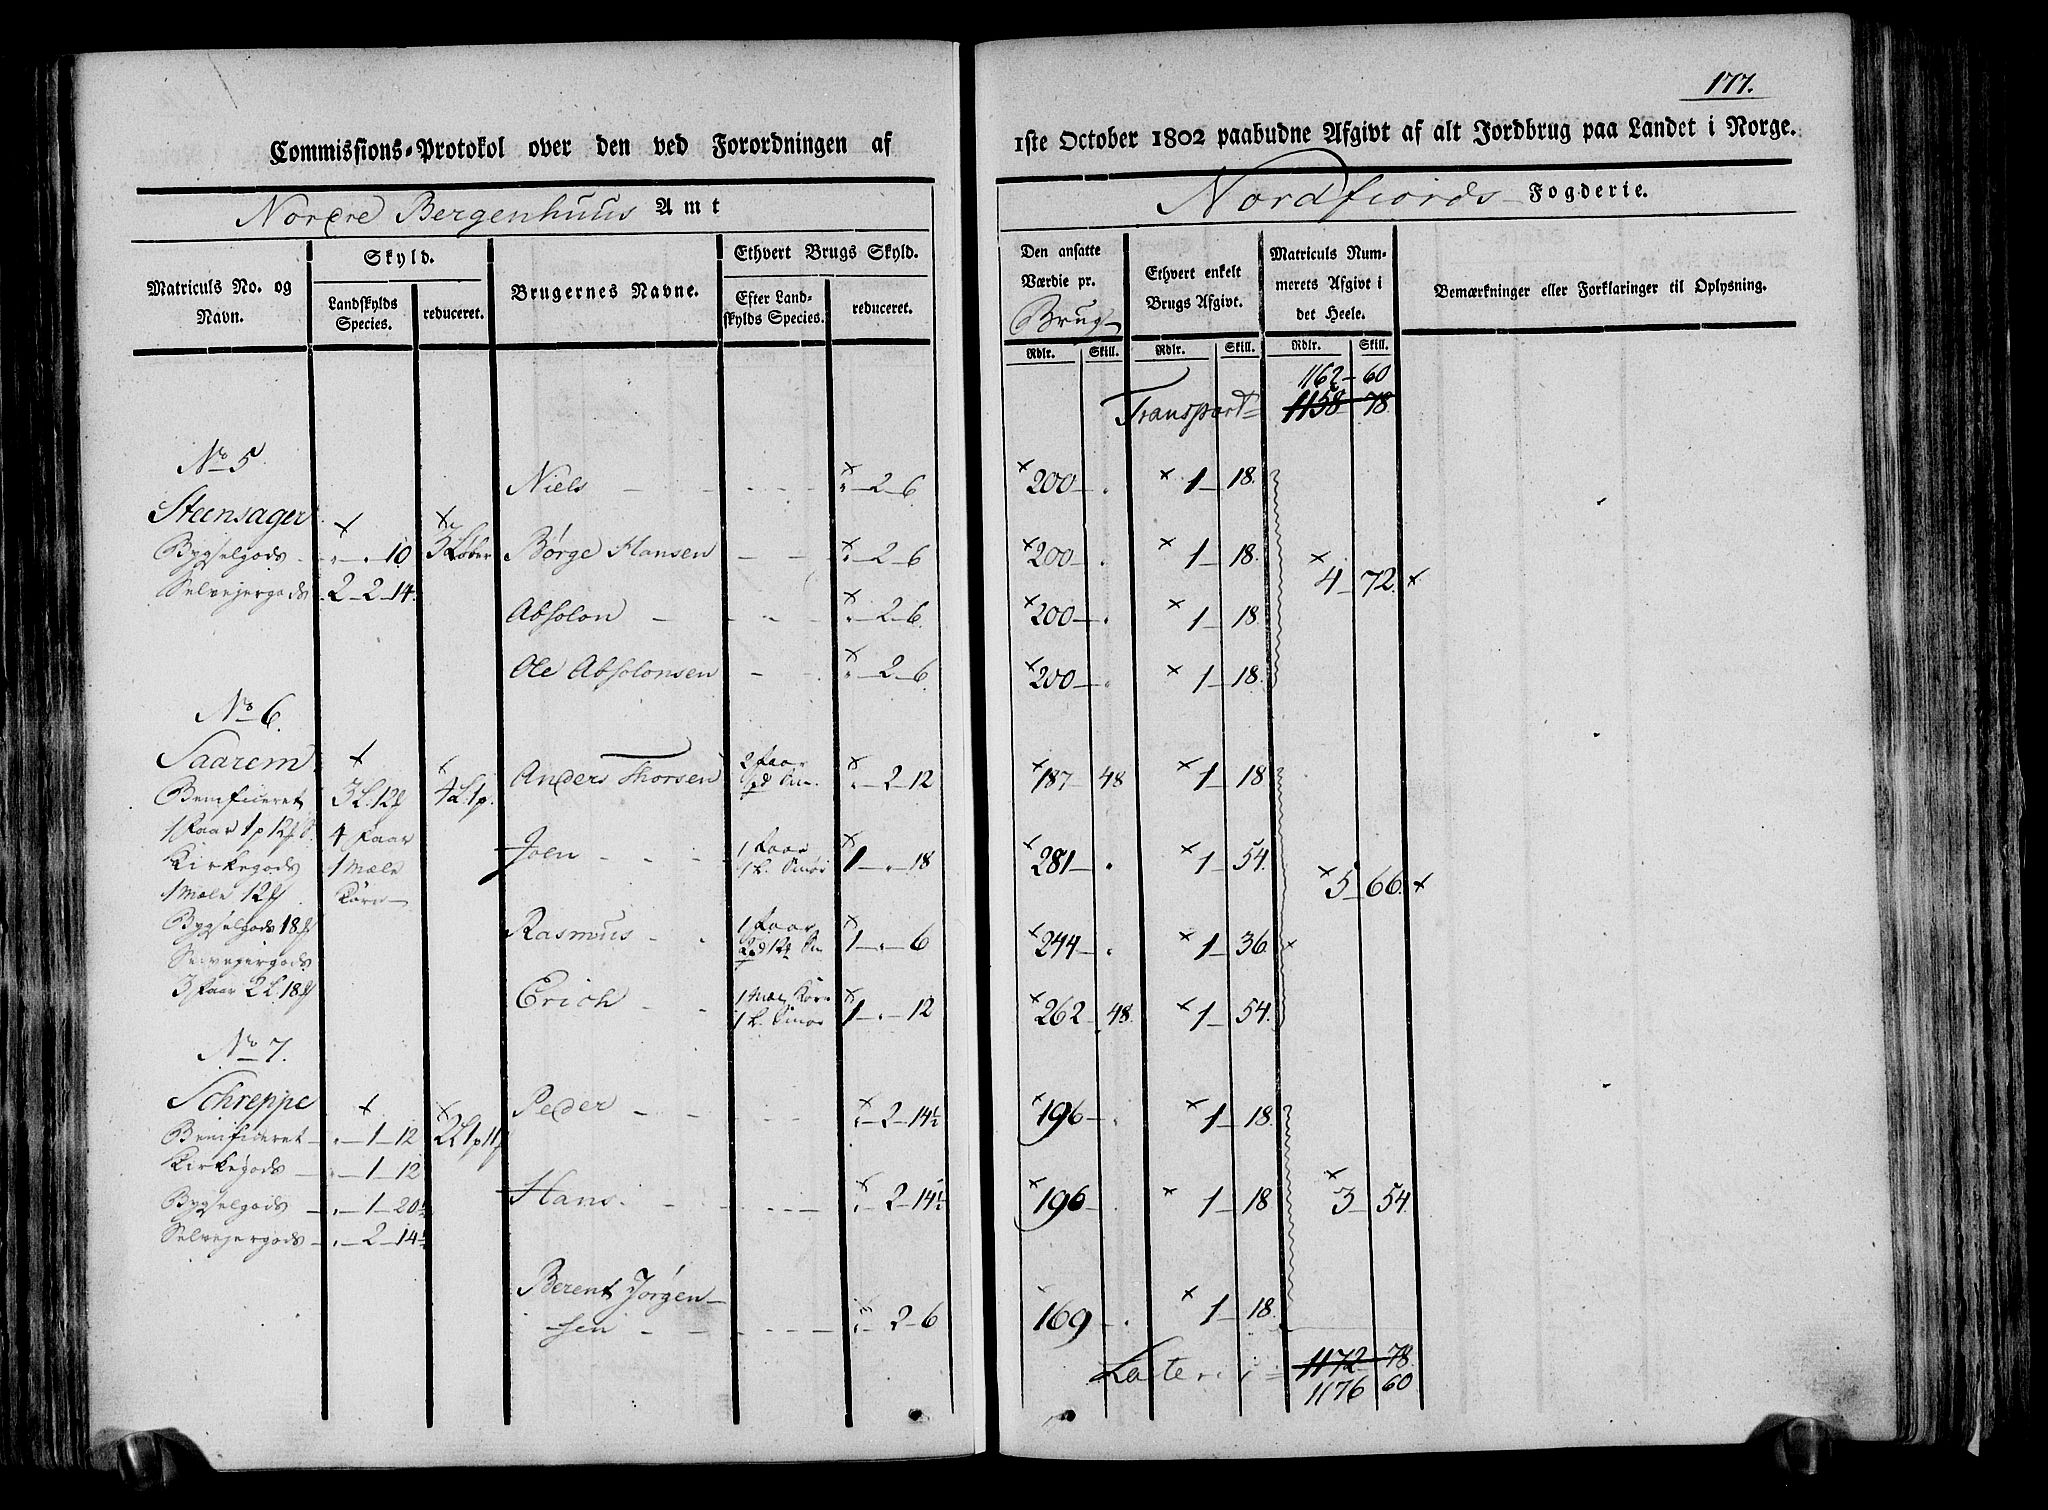 177.
Commissions-Protokol over den ved Forordningen af
1ste October 1802 paabudne Afgivt af alt Jordbrug paa Landet i Norge.
Nordre Bergenhuus Amt
Nordfiords Fogderie.
Matriculs No. og Navn.
Skyld.
Landskylds Species.
reduceret.
Brugernes Navne.
Ethvert Brugs Skyld.
Efter Landskylds Species.
reduceret.
Den ansatte Værdie pr. Brug
Rdlr. Skill.
Ethvert enkelt Brugs Afgivt.
Rdlr. Skill.
Matriculs Nummerets Afgivt i det Heele.
Rdlr. Skill.
Bemærkninger eller Forklaringer til Oplysning.
1162 - 60
Transport = 1158 - 78
No 5
Steensager
Bygselgods - " - " - 10 3 Løber
Selvejergods 2 - 2 - 14
Niels - " - 2 - 6 200 - " 1 - 18
Børge Hansen - " - 2 - 6 200 - " 1 - 18
4 - 72
Absolon - " - 2 - 6 200 - " 1 - 18
Ole Absolonsen - " - 2 - 6 200 - " 1 - 18
No 6
Saarem
Benificeret 3 L. 12 4 L. 1 p.
1 Faar 1 p 12 4 Faar
Kirkegods 1 Mæle
1 Mæle 12 Korn
Bygselgods 18
Selvejergods
3 Faar 2 L. 18
Anders Thorsen 2 Faar " - 2 - 12 187 - 48 1 - 18
Joen 1 Faar 1 L. Smør 1 - " - 18 281 - " 1 - 54
5 - 66
Rasmus 1 Faar 1 - " - 6 244 - " 1 - 36
Erich 1 Mæl Korn 1 L. Smør 1 - " - 12 262 - 48 1 - 54
No 7.
Schreppe
Benificeret - " - 1 - 12 2 L 1 p 11
Kirkegods - " - 1 - 12
Bygselgods - " - 1 - 20½
Selvejergods - " - 2 - 14½
Peder " - 2 - 14½ 196 - " 1 - 18
Hans " - 2 - 14½ 196 - " 1 - 18
3 - 54
Berent Jørgen-
sen " - 2 - 6 169 - " 1 - 18
Lateris = 1172 - 78
1176 60